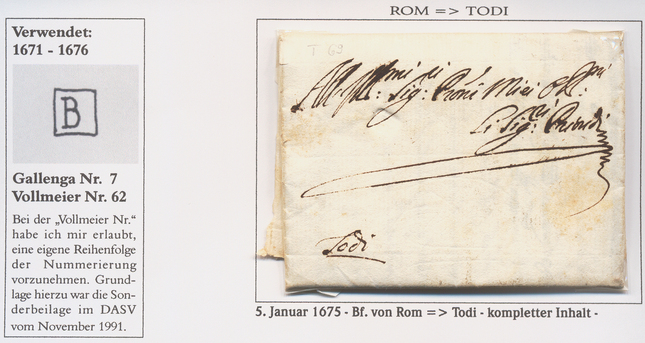 ROM => TODI
Verwendet:
1671 - 1676
B
Gallenga Nr. 7
Vollmeier Nr. 62
Bei der „Vollmeier Nr.“
habe ich mir erlaubt,
eine eigene Reihenfolge
der Nummerierung
vorzunehmen. Grund-
lage hierzu war die Son-
derbeilage im DASV
vom November 1991.
T 69
Sig:
Li Sig:
Todi
5. Januar 1675 - Bf. von Rom => Todi - kompletter Inhalt -